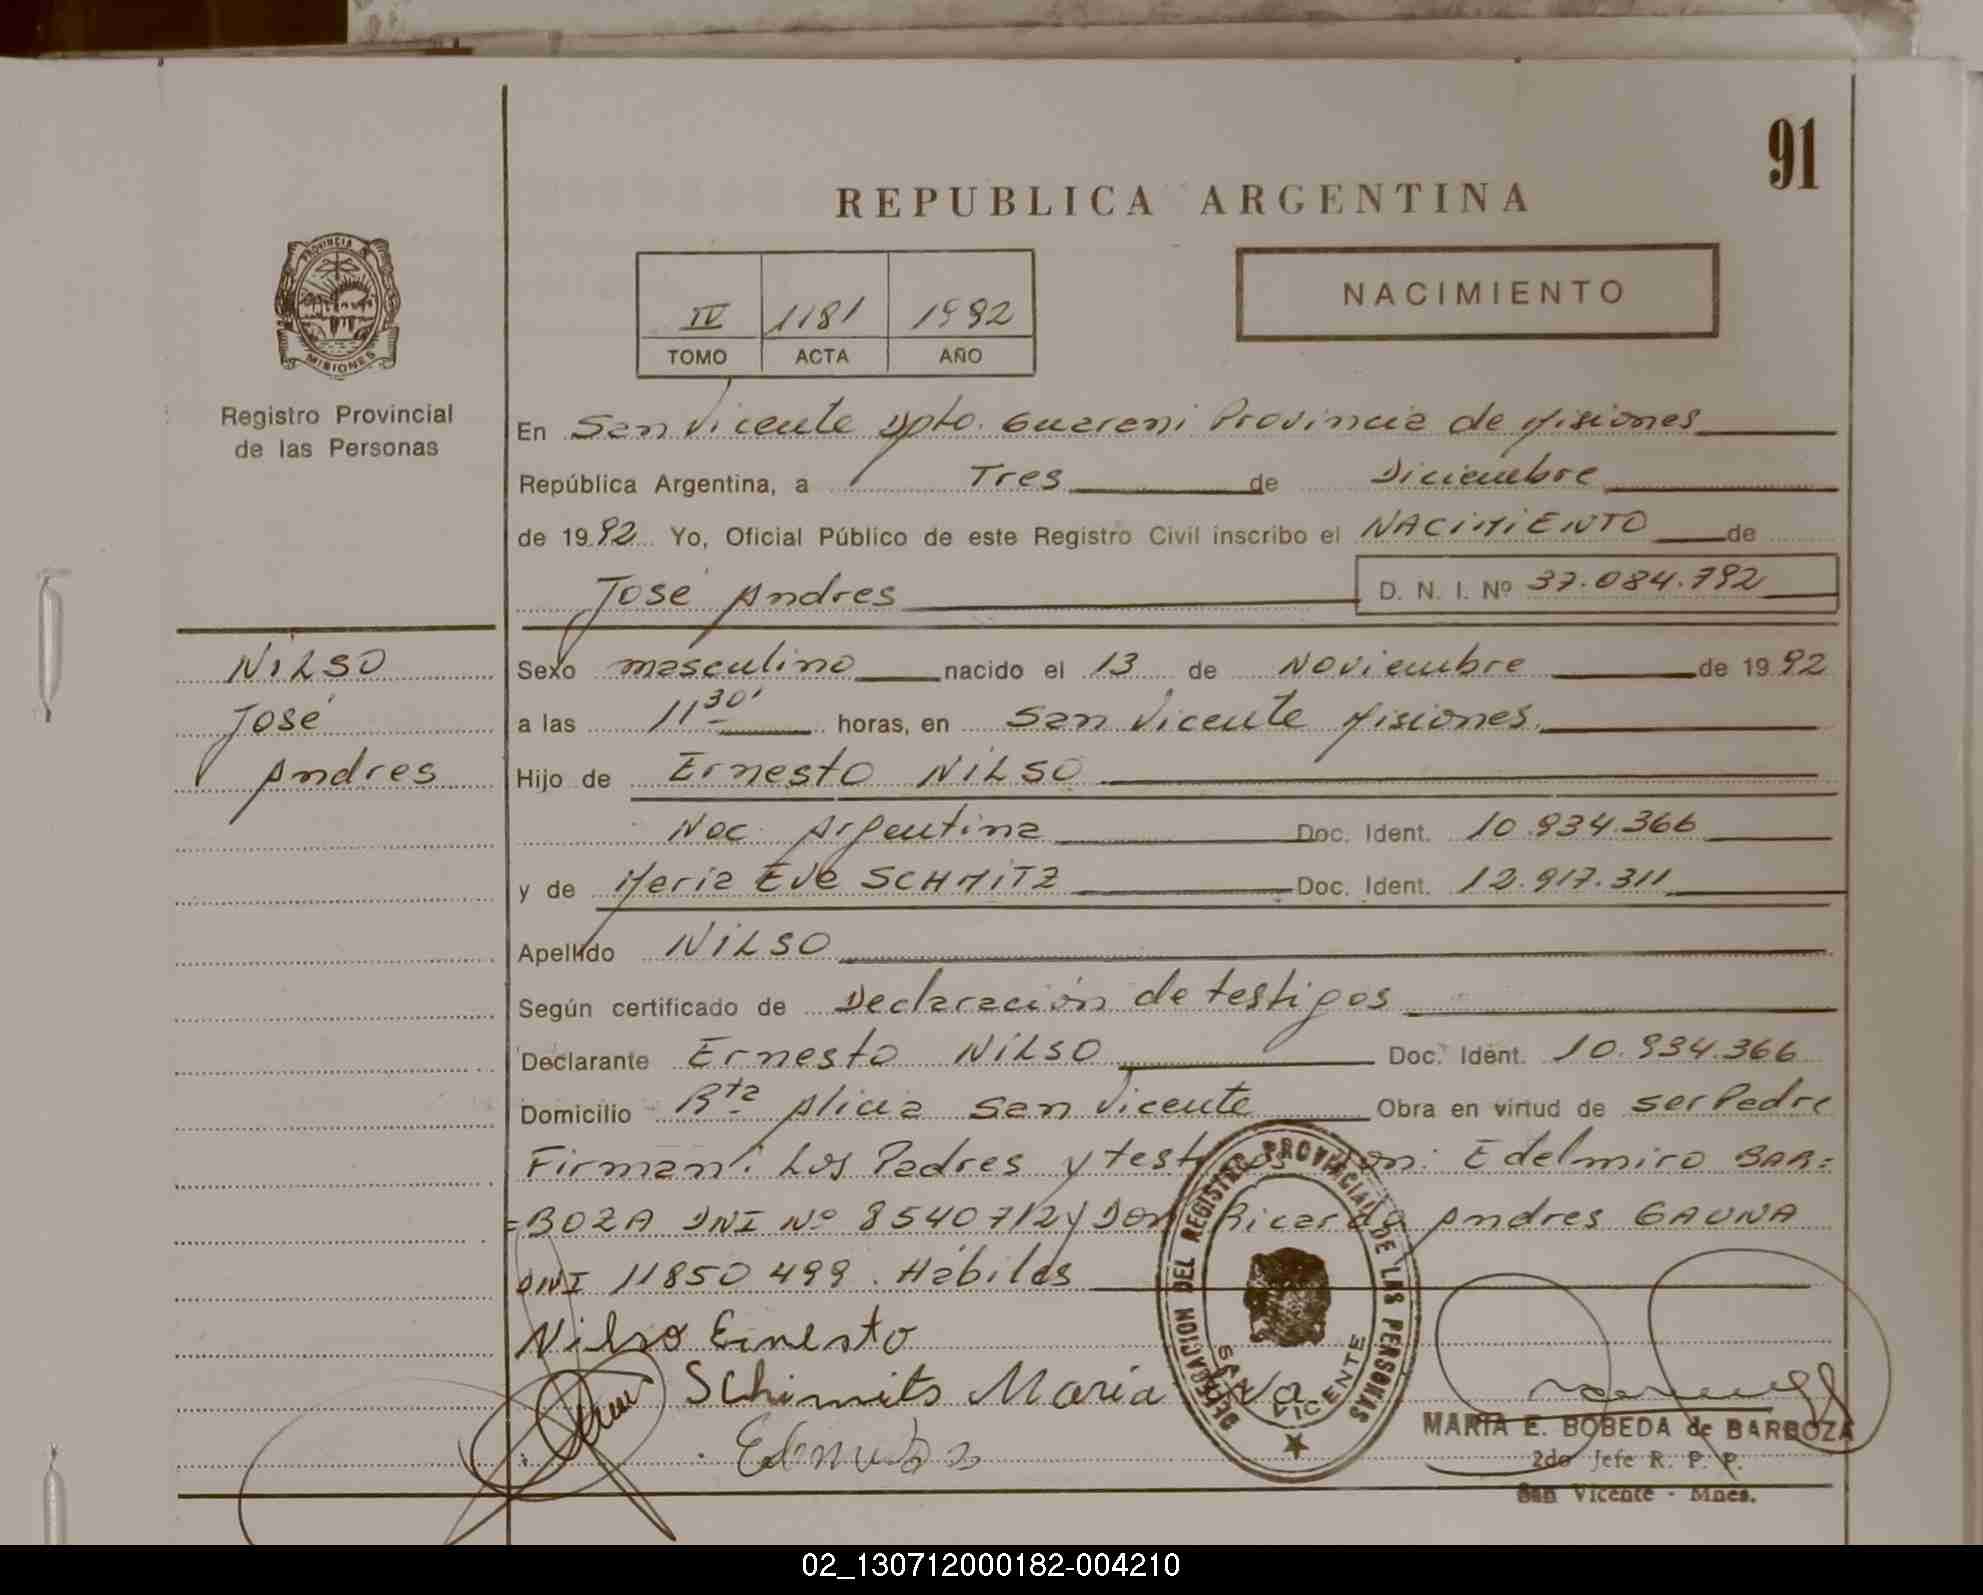 91
REPUBLICA ARGENTINA
PROVINCIA DE
MISIONES
Registro Provincial
de las Personas
NACIMIENTO
IV 1181 1992
TOMO ACTA AÑO
En San Vicente Dpto. Guarani Provincia de Misiones
República Argentina, a Tres de Diciembre
de 1992 Yo, Oficial Público de este Registro Civil inscribo el NACIMIENTO de
José Andres D. N. I. Nº 37.084.792
NILSO
José
Andres
Sexo masculino nacido el 13 de Noviembre de 1992
a las 11 30' horas, en San Vicente Misiones.
Hijo de Ernesto NILSO
Nac. Argentina Doc. Ident. 10.934.366
y de Maria Eva SCHMITZ Doc. Ident. 12.917.311
Apellido NILSO
Según certificado de Declaración de testigos
Declarante Ernesto NILSO Doc. Ident. 10.934.366
Domicilio Rta Alicia San Vicente Obra en virtud de ser Padre
Firman: Los Padres y testigos Don: Edelmiro BAR=
=BOZA DNI Nº 8540712 y Don Ricardo Andres GAUNA
DNI 11850499. Hábiles
Nilso Ernesto
Schimits Maria Eva
DELEGACION DEL REGISTRO PROVINCIAL DE LAS PERSONAS
SAN VICENTE
MARIA E. BOBEDA de BARBOZA
2do Jefe R. P. P.
San Vicente - Mnes.
02_130712000182-004210